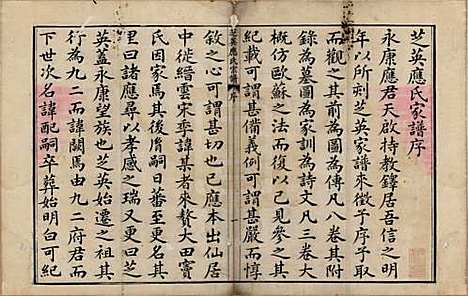 芝英應氏家譜序
永康應君天啟持教鐸居吾信之明
年以所刻芝英家譜來徵子序子取
而觀之其前為圖為傳凡八卷其附
錄為墓圖為家訓為詩文凡三卷大
概仿歐蘇之法而復以己見參之其
紀載可謂甚備義例可謂甚嚴而惇
芝英應氏宗譜 序
敘之心可謂甚切也已應本出仙居
中徙縉雲宋季諱某者來贅大田竇
氏因家焉其後胤嗣日蕃至更其
里曰諸應尋以孝感之瑞又更曰芝
英蓋永康望族也芝英始遷之祖其
行為九二而諱闕焉由九二府君而
下世次名諱配嗣卒葬始明白可紀